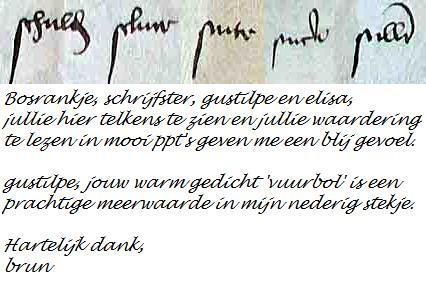 Bosrankje, schrijfster, gustilpe en elisa,
jullie hier telkens te zien en jullie waardering
te lezen in mooi ppt's geven me een blij gevoel.
gustilpe, jouw warm gedicht 'vuurbol' is een
prachtige meerwaarde in mijn nederig stekje.
Hartelijk dank,
brun